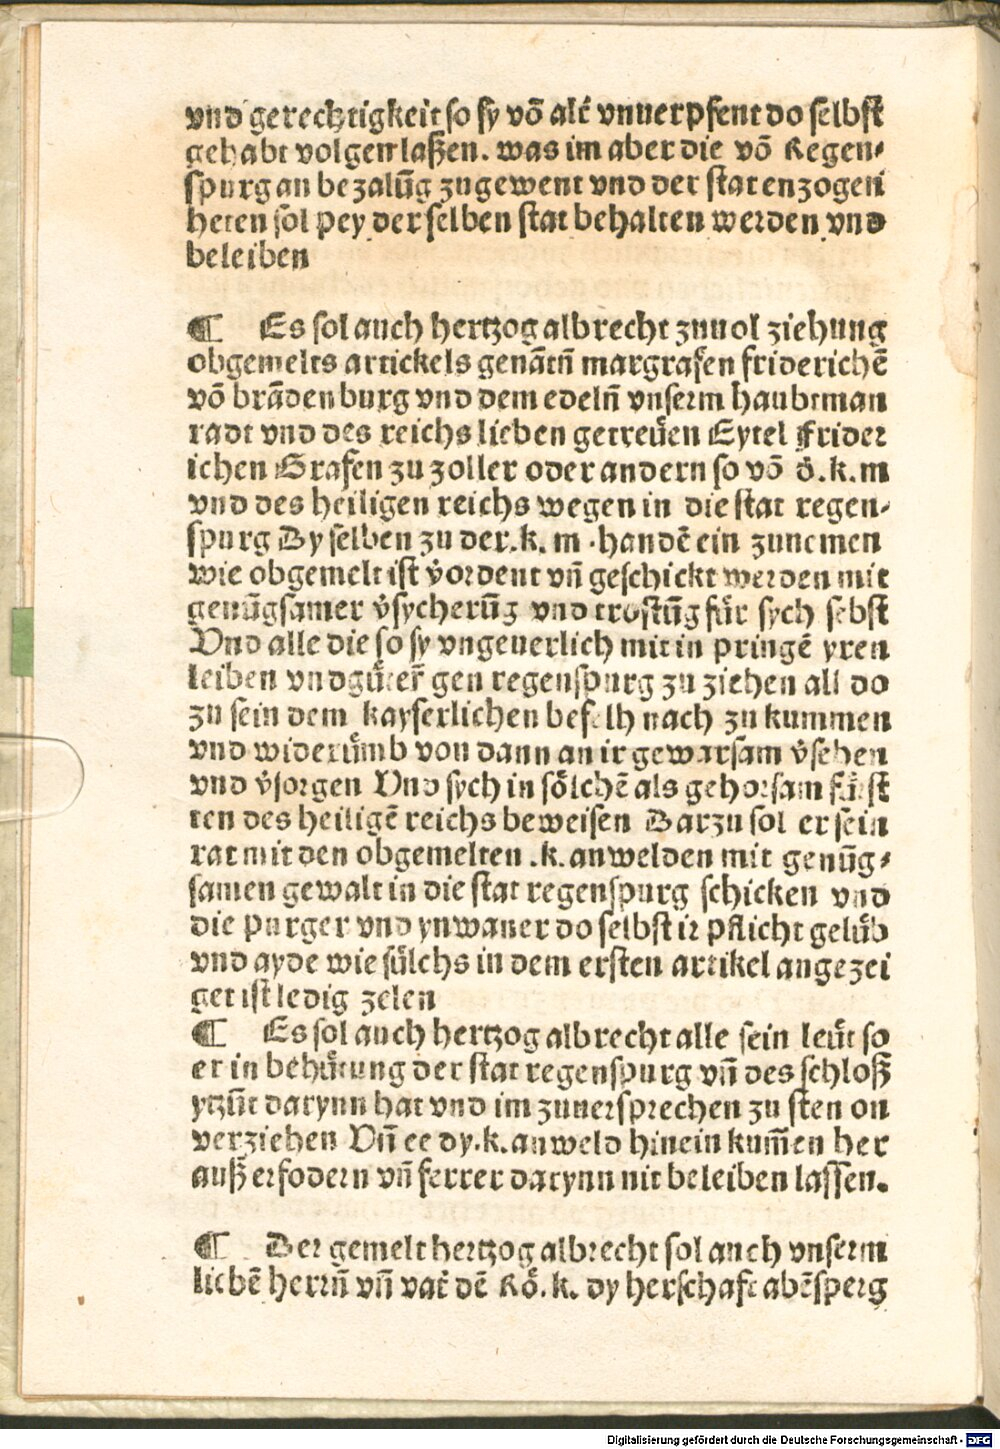 vnd gerechtigkeit so sy võ alt̃ vnuerpfent do selbst
gehabt volgen laßen. was im aber die võ Regen⸗
spurg an bezalũg zugewent vnd der stat enzogen
heten sol pey der selben stat behalten werden vnd
beleiben
¶ Es sol auch hertzog albrecht zuuol ziehung
obgemelts artickels genãtñ margrafen friderichẽ
võ brãdenburg vnd dem edelñ vnserm haubtman
radt vnd des reichs lieben getreüen Eytel frider
ichen Grafen zu zoller oder andern so võ d̕.k.m
vnd des heiligen reichs wegen in die stat regen⸗
spurg Dy selben zu der.k.m.handẽ ein zunemen
wie obgemelt ist v̕ordent vñ geschickt werden mit
genũgsamer v̕sycherũg vnd trostũg für sych sebst
Vnd alle die so sy vngeuerlich mit in pringẽ yren
leiben vnd güter̃ gen regenspurg zu ziehen all do
zu sein dem kayserlichen befelh nach zu kummen
vnd widerũmb von dann an ir gewarsam v̕sehen
vnd v̕sorgen Vnd sych in sölchẽ als gehorsam fürst
ten des heiligẽ reichs beweisen Darzu sol er sein
rat mit den obgemelten .k. anwelden mit genũg⸗
samen gewalt in die stat regenspurg schicken vnd
die purger vnd ynwaner do selbst ir pflicht gelüb
vnd ayde wie sülchs in dem ersten artikel angezei
get ist ledig zelen
¶ Es sol auch hertzog albrecht alle sein leüt so
er in behütung der stat regenspurg vñ des schloß
ytzũt darynn hat vnd im zuuersprechen zu sten on
verziehen Vñ ee dy.k.anweld hinein kum̃en her
auß erfodern vñ ferrer darynn nit beleiben lassen.
¶ Der gemelt hertzog albrecht sol auch vnserm
liebẽ herrñ vñ vat̃ dẽ Rö.k. dy herschaft abẽsperg
Digitalisierung gefördert durch die Deutsche Forschungsgemeinschaft - DFG